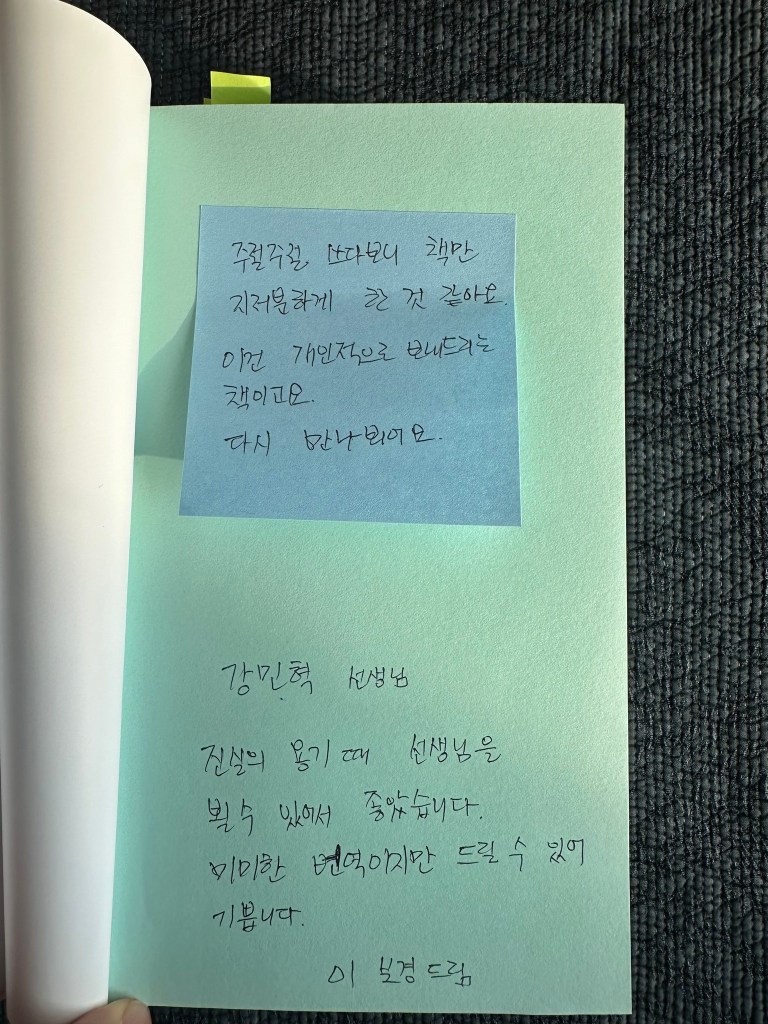 주절주절 쓰다보니 책만
지저분하게 한 것 같아요.
이건 개인적으로 보내드리는
책이고요.
다시 만나뵈어요.
강민혁 선생님
진실의 용기 때 선생님을
뵐 수 있어서 좋았습니다.
미미한 번역이지만 드릴 수 있어
기쁩니다.
이보경 드림